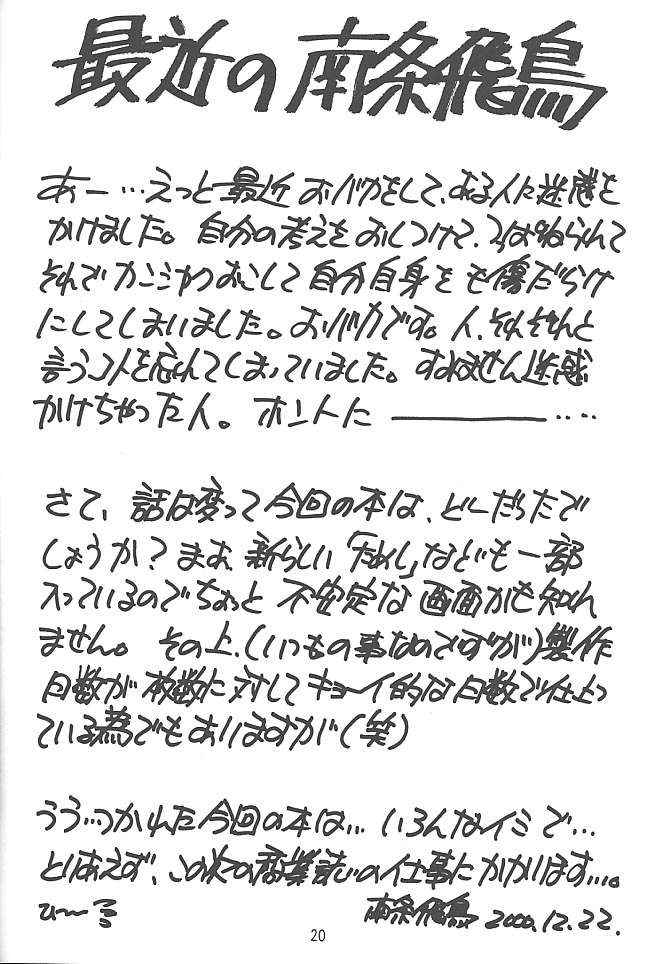 最近の南条飛鳥
あー…えっと最近おバカをして、ある人に迷惑を
かけました。自分の考えをおしつけて、つっぱねられて
それでカンシャクおこして自分自身をも傷だらけ
にしてしまいました。おバカです。人、それぞれと
言うコトを忘れてしまっていました。すみません迷惑
かけちゃった人。ホントに――――――‥‥
さて、話は変って今回の本は、どーだったで
しょうか?まぁ、新らしい「ためし」なども一部
入っているのでちょっと不安定な画面かも知れ
ません。その上、(いつもの事なのですが)製作
日数が枚数に対してキョーイ的な日数で仕上っ
ている為でもありますが(笑)
うう…つかれた今回の本は…いろんなイミで…
とりあえず、この次の商業誌の仕事にかかります…。
ひ〜
南条飛鳥 2000.12.22.
20